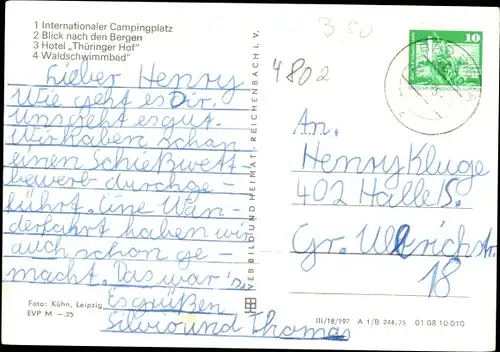 1 Internationaler Campingplatz
2 Blick nach den Bergen
3 Hotel „Thüringer Hof“
4 Waldschwimmbad“
Lieber Henry
Wie geht es Dir.
Uns geht es gut.
Wir haben schon
einen Schießwett
bewerb durchge-
führt. Eine Wan-
derfahrt haben wir
auch schon ge-
macht. Das war's
Es grüßen
Silvio und Thomas
Foto: Kühn, Leipzig
EVP M –.25
VEB BILD UND HEIMAT, REICHENBACH I. V.
III/18/197 A 1/B 244/75 01 08 10 010
3 50
4802
10
An.
Henry Kluge
402 Halle S.
Gr. Ulrichstr
18